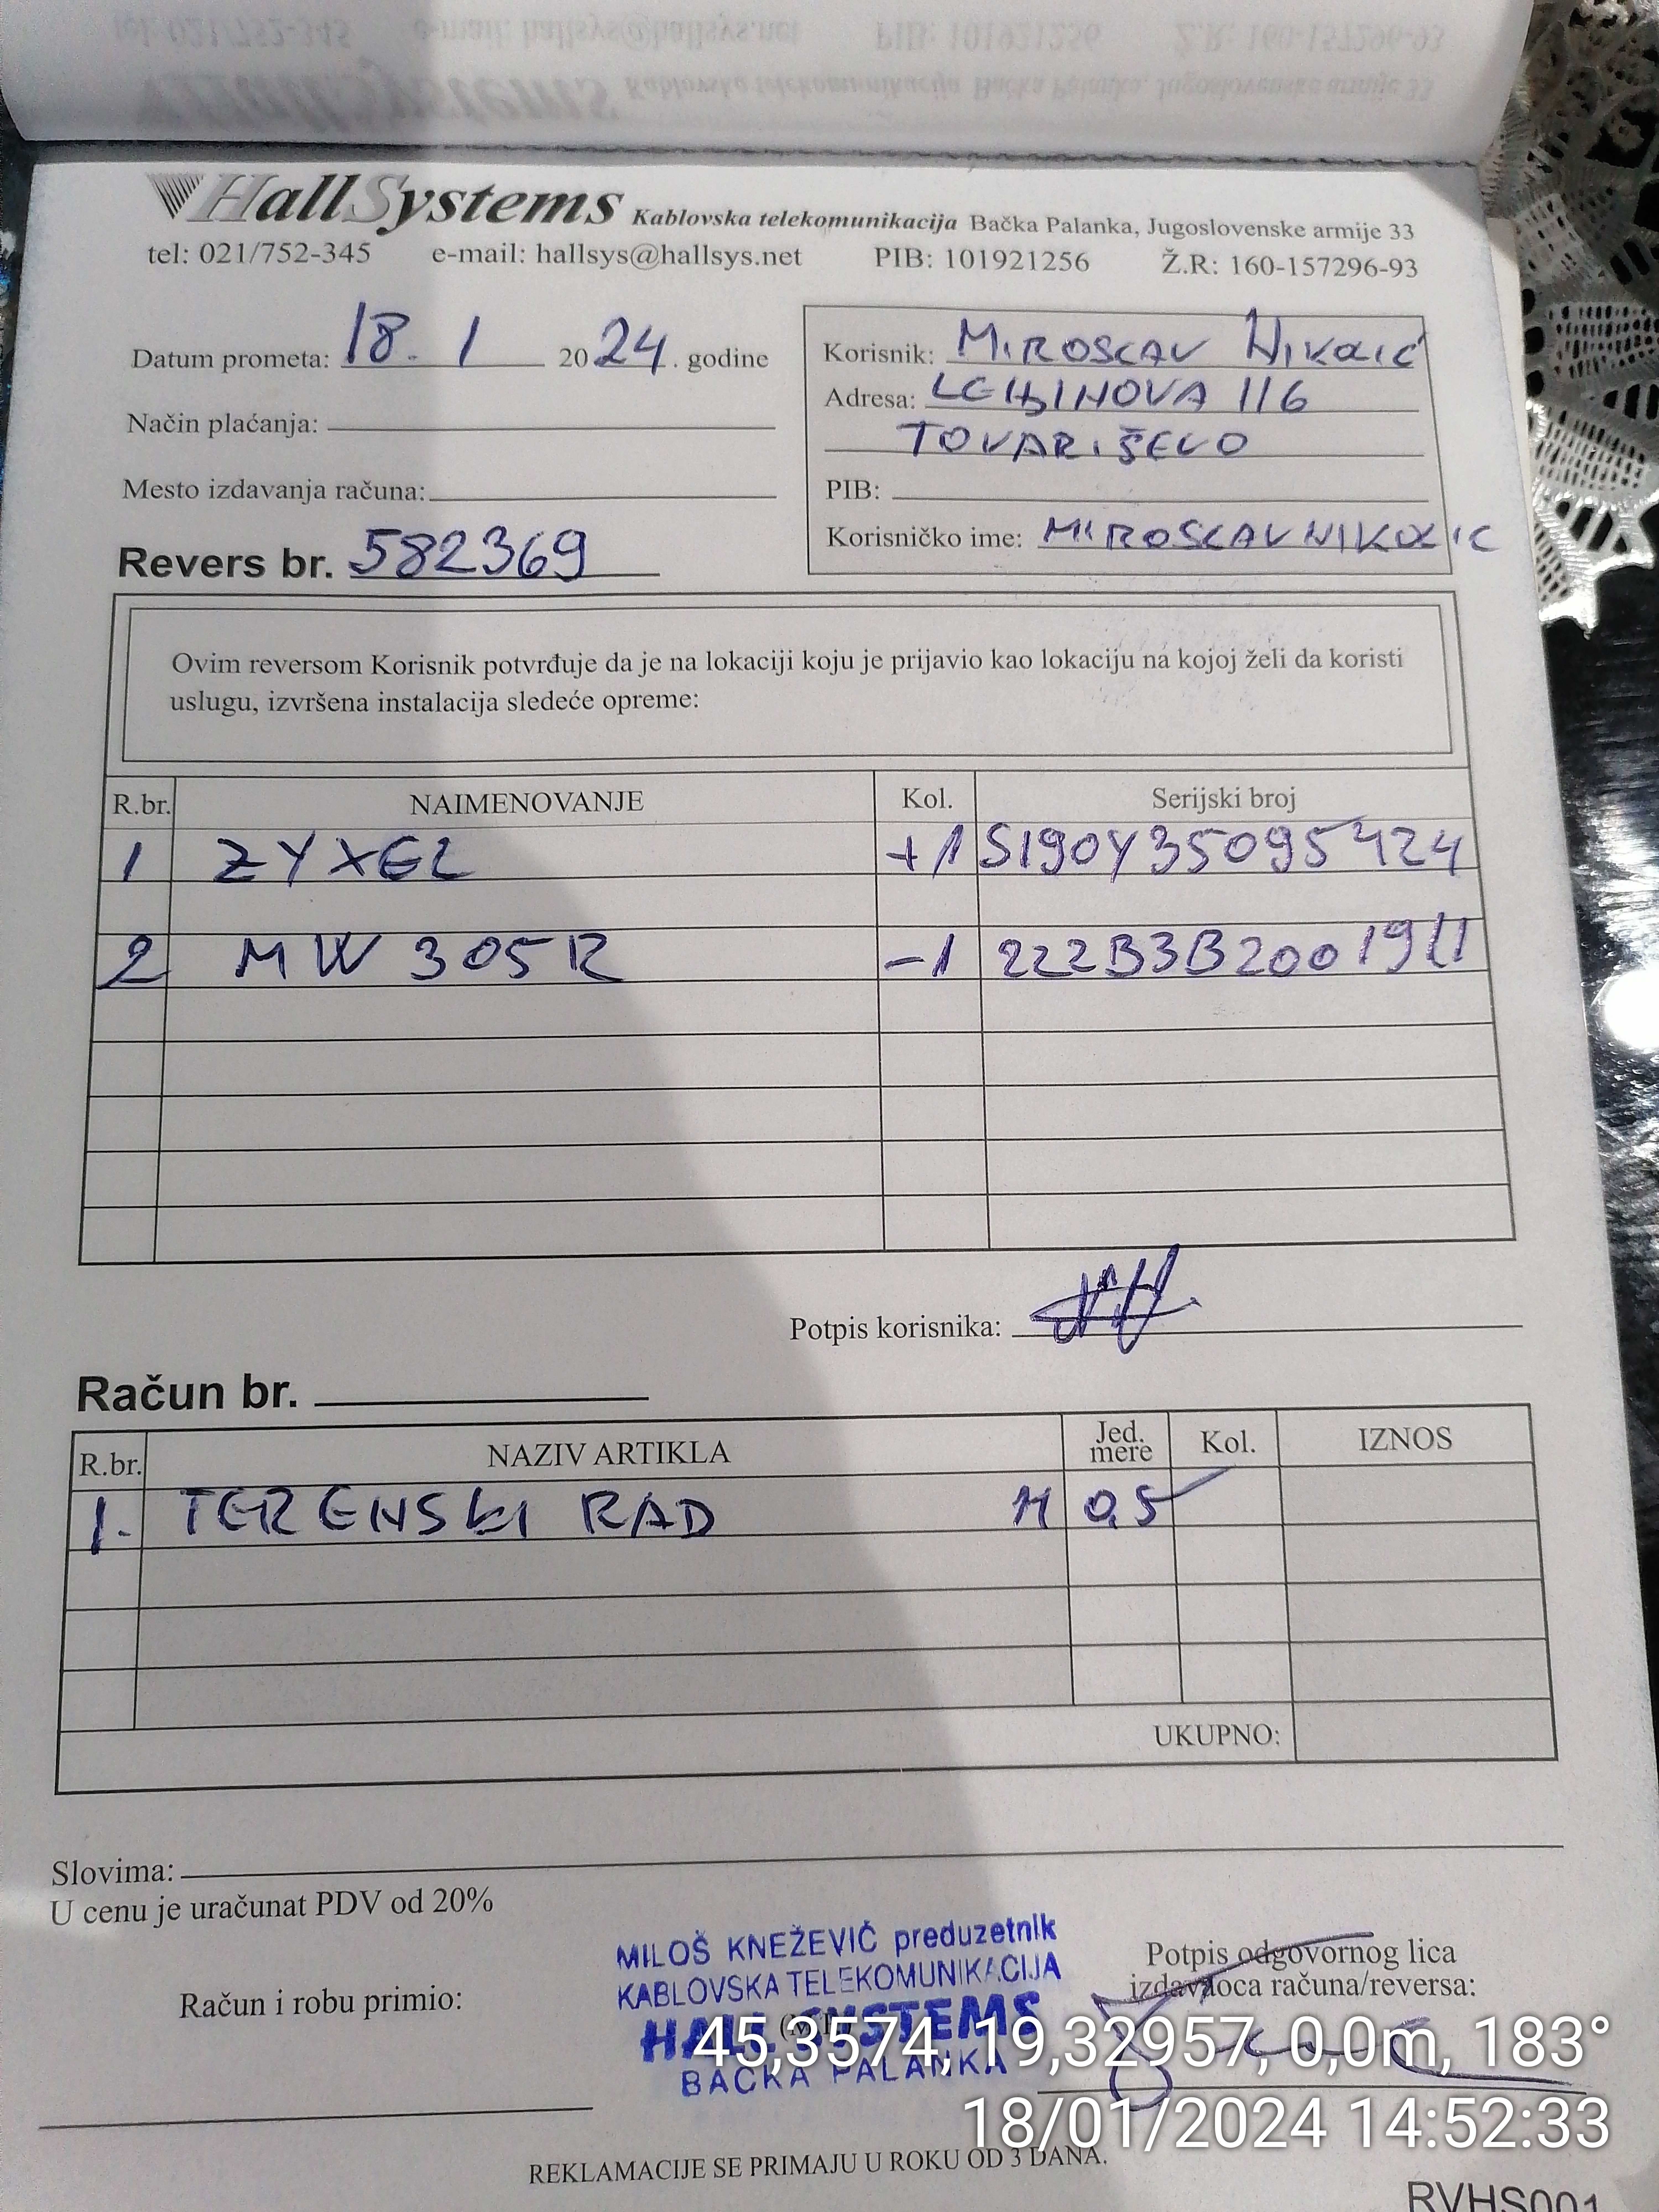 HallSystems Kablovska telekomunikacija Bačka Palanka, Jugoslovenske armije 33
tel: 021/752-345 e-mail: hallsys@hallsys.net PIB: 101921256 Ž.R: 160-157296-93
Datum prometa: 18. 1 2024. godine
Način plaćanja:
Mesto izdavanja računa:
Revers br. 582369
Korisnik: MIROSLAV NIKOLIĆ
Adresa: LENJINOVA 116
TOVARIŠEVO
PIB:
Korisničko ime: MIROSLAVNIKOLIC
Ovim reversom Korisnik potvrđuje da je na lokaciji koju je prijavio kao lokaciju na kojoj želi da koristi
uslugu, izvršena instalacija sledeće opreme:
R.br. NAIMENOVANJE Kol. Serijski broj
1 ZYXEL +1 S190Y35095424
2 MW 305R -1 222B3B2001911
Potpis korisnika:
Račun br.
R.br. NAZIV ARTIKLA Jed. mere Kol. IZNOS
1. TERENSKI RAD H 0,5
UKUPNO:
Slovima:
U cenu je uračunat PDV od 20%
Račun i robu primio:
MILOŠ KNEŽEVIĆ preduzetnik
KABLOVSKA TELEKOMUNIKACIJA
HALL SYSTEMS
BAČKA PALANKA
Potpis odgovornog lica
izdavaoca računa/reversa:
45,3574, 19,32957, 0,0m, 183°
18/01/2024 14:52:33
REKLAMACIJE SE PRIMAJU U ROKU OD 3 DANA.
RVHS001